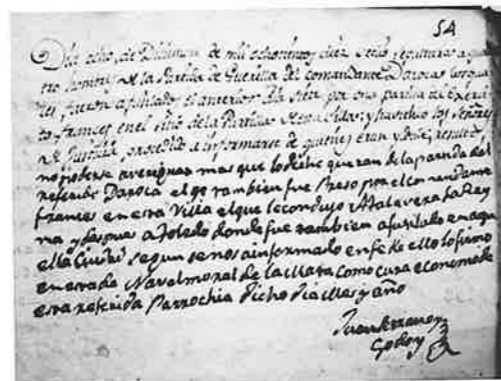 54
Dia ocho, de Diciembre de mil ochocientos diez, se enterraron qua
tro hombres de la Partida de Guerilla del comandante Daroca los qua
les, fueron afusilados el anterior dia siete por una partida del Exerci
to frances en el sitio de la y haviendo los Señores
de Justicia, procedido a informarse de quienes eran y de resulto,
no poderse averiguar mas que lo dicho que eran de la partida del
referido Daroca el qe tambien fue Preso por el comandante
frances en esta Villa el que le condujo a Talavera la Rey
na y despues a Toledo donde fue tambien afusilado en aqu
ella Ciudad segun se nos a informado en fe de ello lo firmo
en esta de Navalmoral de la Mata como cura economo de
esta referida Parrochia dicho dia Mes y año
Juan
Godoy